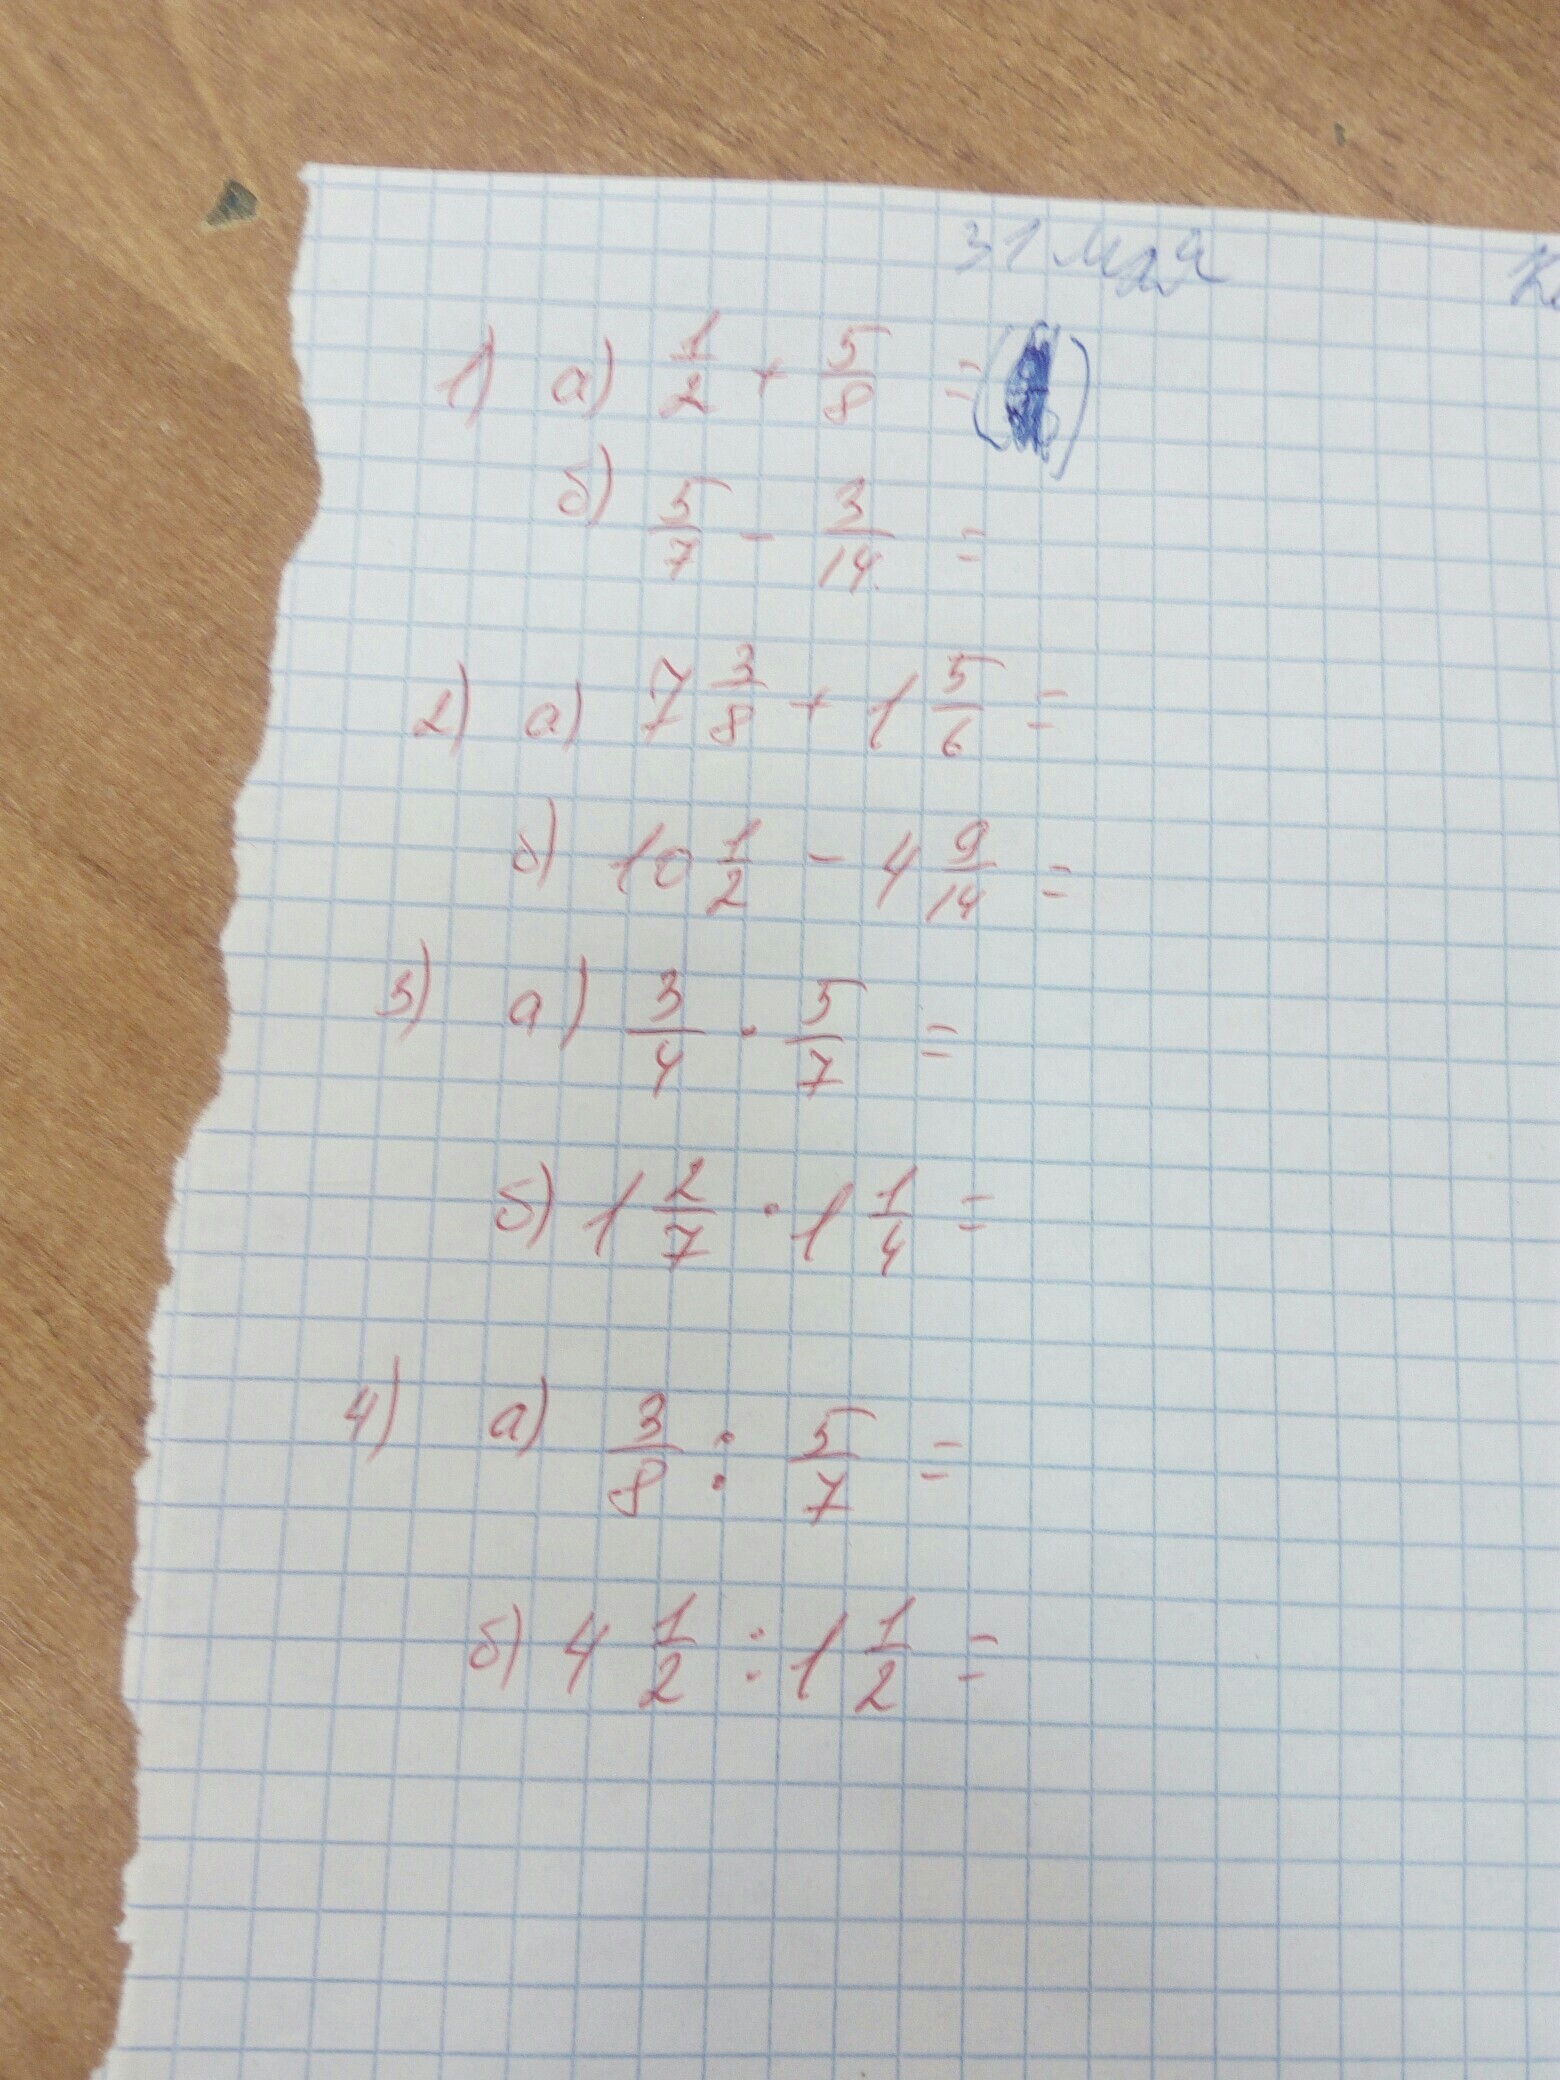 31 мая
1) а) 1/2 + 5/8 = ( )
б) 5/7 - 3/14 =
2) а) 7 3/8 + 1 5/6 =
б) 10 1/2 - 4 9/14 =
3) а) 3/4 · 5/7 =
б) 1 2/7 · 1 1/4 =
4) а) 3/8 : 5/7 =
б) 4 1/2 : 1 1/2 =